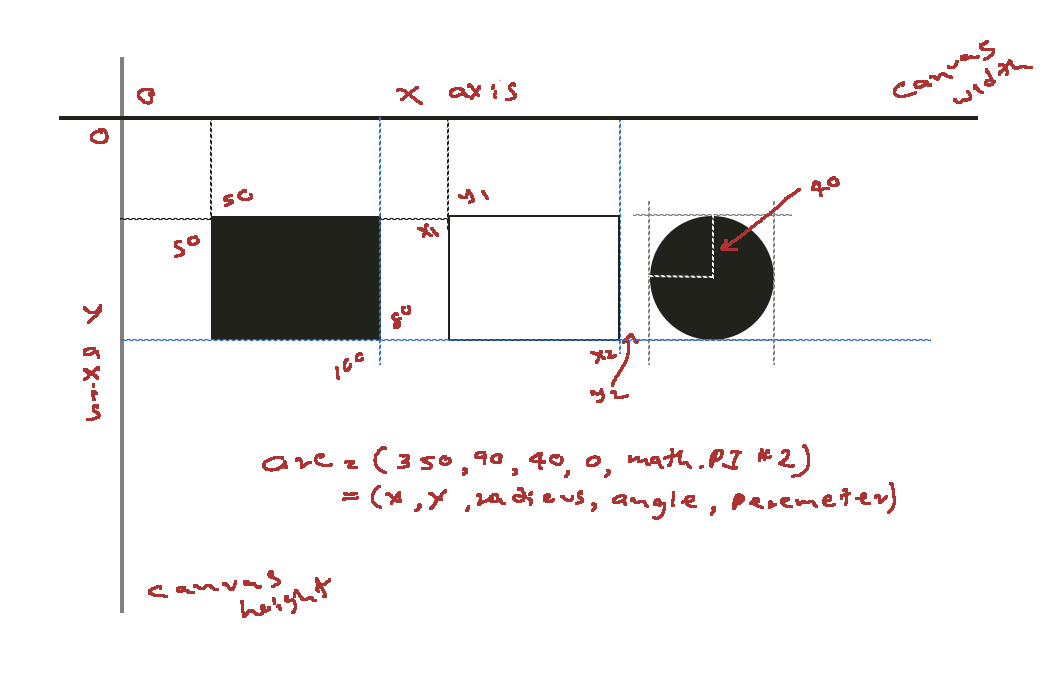 canvas
width
0
x axis
0
50
y1
40
50
x1
80
y axis
100
x2
y2
arc = (350, 90, 40, 0, math.PI * 2)
= (x, y, radieus, angle, peremeter)
canvas
height